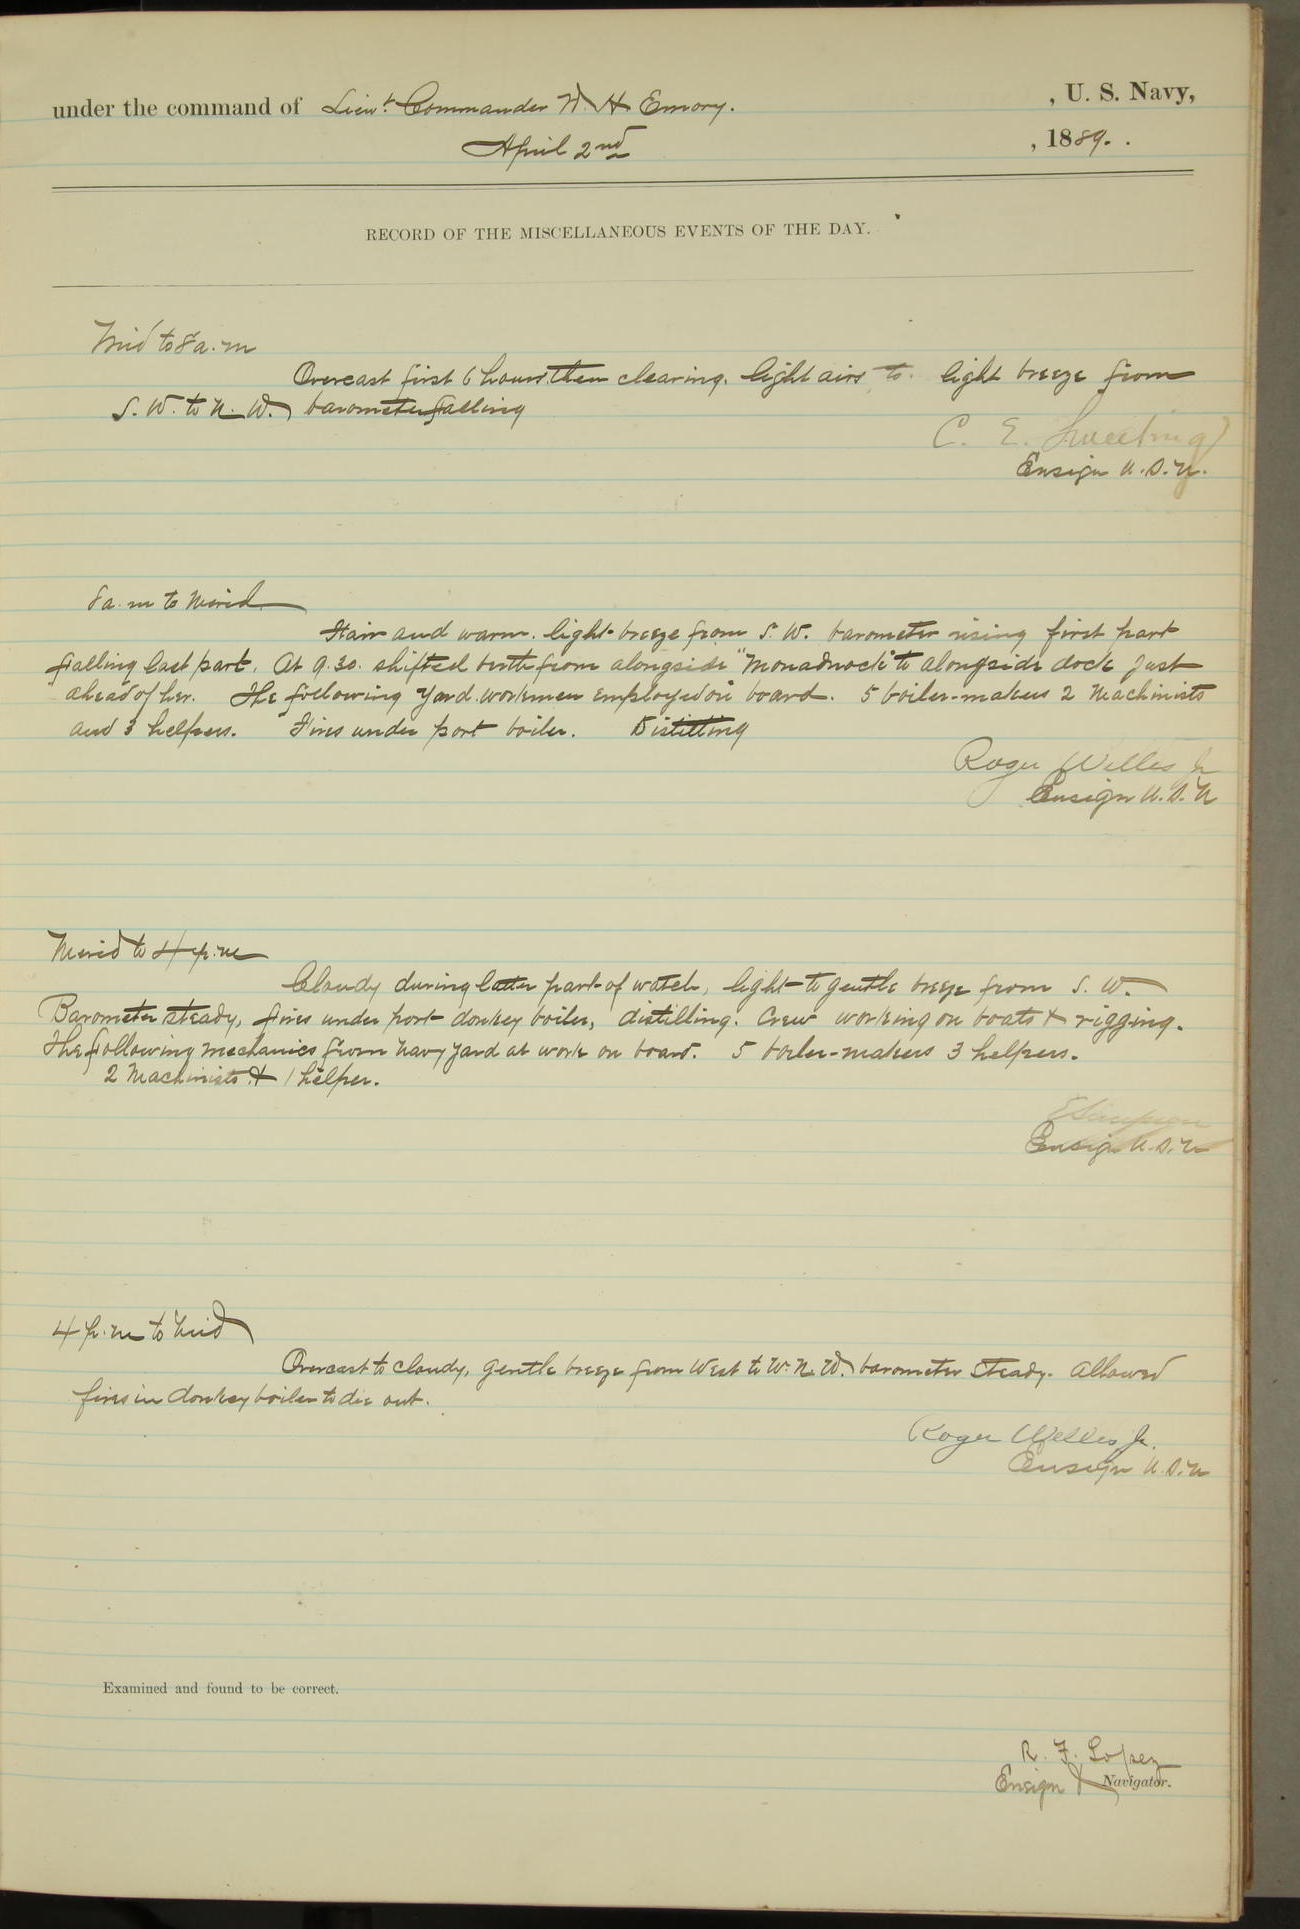 under the command of Lieut. Commander W. H. Emory. , U. S. Navy,
April 2nd , 1889. .
RECORD OF THE MISCELLANEOUS EVENTS OF THE DAY.
Mid to 8 a.m
Overcast first 6 hours. then clearing. light airs to light breeze from
S. W. to N. W. barometer falling
C. E. Sweeting
Ensign U.S.N.
8 a.m to Merid
Fair and warm. light breeze from S. W. barometer rising first part
falling last part. At 9.30. shifted berth from alongside "Monadnock" to alongside dock just
ahead of her. The following yard workmen employed on board. 5 boiler-makers 2 Machinists
and 3 helpers. Fires under port boiler. Distilling
Roger Welles Jr
Ensign U.S.N
Merid to 4 p.m
Cloudy during latter part of watch, light to gentle breeze from S. W.
Barometer steady, fires under port donkey boiler, distilling. Crew working on boats & rigging.
The following mechanics from Navy Yard at work on board. 5 boiler-makers 3 helpers.
2 Machinists & 1 helper.
E Simpson
Ensign U.S.N
4 p.m to Mid
Overcast to cloudy, gentle breeze from West to W.N.W. barometer steady. Allowed
fires in donkey boiler to die out.
Roger Welles Jr.
Ensign U.S.N
Examined and found to be correct.
R. F. Lopez
Ensign & Navigator.